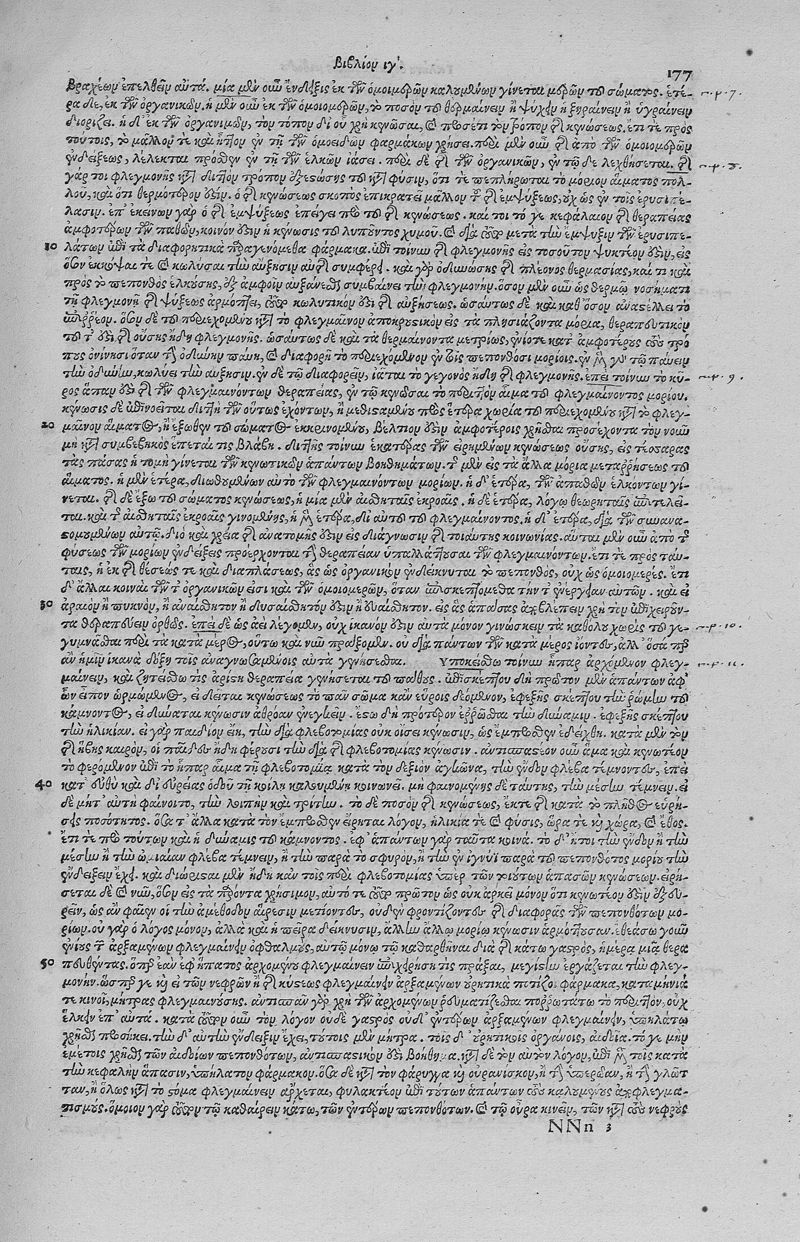 Βιβλίον ιγʹ.
177
βραχέων ἐπελθεῖν αὐτά. μία μὲν οὖν ἔνδειξις ἐκ τῶν ὁμοιομερῶν καλουμένων γίνεται μερῶν τοῦ σώματος. ἑτέ-
ρα δὲ, ἐκ τῶν ὀργανικῶν. ἡ μὲν οὖν ἐκ τῶν ὁμοιομερῶν, τὸ ποσὸν τοῦ θερμαίνειν ἢ ψύχειν ἢ ξηραίνειν ἢ ὑγραίνειν
διορίζει. ἡ δ' ἐκ τῶν ὀργανικῶν, τὸν τόπον δι' οὗ χρὴ κενῶσαι, καὶ προσέτι τὸν τρόπον τῆς κενώσεως. ἔτι τε πρὸς
τούτοις, τὸ μᾶλλόν τε καὶ ἧττον ἐν τῇ τῶν ὁμοειδῶν φαρμάκων χρήσει. περὶ μὲν οὖν τῆς ἀπὸ τῶν ὁμοιομερῶν
ἐνδείξεως, λέλεκται πρόσθεν ἐν τῇ τῶν ἑλκῶν ἰάσει. περὶ δὲ τῆς τῶν ὀργανικῶν, ἐν τῷδε λεχθήσεται. τῆς
γάρ τοι φλεγμονῆς διττὸν τρόπον ἐξεστώσης τοῦ κατὰ φύσιν, ὅτι τε πεπλήρωται τὸ μόριον αἵματος πολ-
λοῦ, καὶ ὅτι θερμότερόν ἐστιν. ὁ τῆς κενώσεως σκοπὸς ἐπικρατεῖ μᾶλλον τῆς ἐμψύξεως, οὐχ ὡς ἐν τοῖς ἐρυσιπέ-
λασιν. ἐπ' ἐκείνων γὰρ ὁ τῆς ἐμψύξεως ἐπείγει πρὸ τοῦ τῆς κενώσεως. καί τοι τό γε κεφάλαιον τῆς θεραπείας
ἀμφοτέρων τῶν παθῶν, κοινόν ἐστιν ἡ κένωσις τοῦ λυποῦντος χυμοῦ. καὶ διὰ τοῦτο μετὰ τὴν ἔμψυξιν τῶν ἐρυσιπε-
10 λάτων ἐπὶ τὰ διαφορητικὰ παραγενόμεθα φάρμακα. ἐπὶ τοίνυν τῆς φλεγμονῆς εἰς τοσοῦτον ψυκτέον ἐστὶν, εἰς
ὅσον ἐκκόψαι τε καὶ κωλῦσαι τὴν αὔξησιν αὐτῆς συμφέρει. καὶ γὰρ ὀδυνώσης τῆς πλέονος θερμασίας, καί τι καὶ
πρὸς τὸ πεπονθὸς ἑλκούσης, ἐξ ἀμφοῖν αὐξάνεσθαι συμβαίνει τὴν φλεγμονήν. ὅσον μὲν οὖν ὡς θερμῷ νοσήματι
τῇ φλεγμονῇ τῆς ψύξεως ἁρμόττει, τοῦτο κωλυτικόν ἐστι τῆς αὐξήσεως. ὡσαύτως δὲ καὶ καθ' ὅσον ἀναστέλλει τὸ
ἐπιῤῥέον. ὅσον δὲ τοῦ περιεχομένου κατὰ τὸ φλεγμαῖνον ἀποκρουστικὸν εἰς τὰ πλησιάζοντα μόρια, θεραπευτικὸν
τοῦτ' ἐστὶ τῆς οὔσης ἤδη φλεγμονῆς. ὡσαύτως δὲ καὶ τὰ θερμαίνοντα μετρίως, ἐνίοτε κατ' ἀμφοτέρους τοὺς τρό-
πους ὀνίνησι ὅταν τὴν ὀδύνην παύῃ, καὶ διαφορῇ τὸ περιεχόμενον ἐν τοῖς πεπονθόσι μορίοις. ἐν μὲν γὰρ τῷ παύειν
τὴν ὀδύνην, κωλύει τὴν αὔξησιν. ἐν δὲ τῷ διαφορεῖν, ἰᾶται τὸ γεγονὸς ἤδη τῆς φλεγμονῆς. ἐπεὶ τοίνυν τὸ κῦ-
ρος ἅπαν ἐστὶ τῆς τῶν φλεγμαινόντων θεραπείας, ἐν τῷ κενῶσαι τὸ περιττὸν αἷμα τοῦ φλεγμαίνοντος μορίου.
κένωσις δὲ ἐπινοεῖται διττὴ τῶν οὕτως ἐχόντων, ἢ μεθισταμένου πρὸς ἕτερα χωρία τοῦ περιεχομένου κατὰ τὸ φλεγ-
20 μαῖνον αἵματος, ἢ ἔξωθεν τοῦ σώματος ἐκκρινομένου, βέλτιον ἐστιν ἀμφοτέροις χρῆσθαι προσέχοντα τὸν νοῦν
μή τι συμβεβηκὸς ἕπεται τις βλάβη. διττῆς τοίνυν ἑκατέρας τῶν εἰρημένων κενώσεως οὔσης, εἰς τέσσαρας
τὰς πάσας ἡ τομὴ γίνεται τῶν κενωτικῶν ἁπάντων βοηθημάτων. τῆς μὲν εἰς τὰ ἄλλα μόρια μεταῤῥήσεως τοῦ
αἵματος. ἡ μὲν ἑτέρα, διωθουμένων αὐτὸ τῶν φλεγμαινόντων μορίων. ἡ δ' ἑτέρα, τῶν ἀπαθῶν ἑλκόντων γί-
νεται. τῆς δὲ ἔξω τοῦ σώματος κενώσεως, ἡ μία μὲν αἰσθηταῖς ἐκροαῖς, ἡ δὲ ἑτέρα, λόγῳ θεωρηταῖς ἐπιτελεῖ-
ται. καὶ τῆς αἰσθηταῖς ἐκροαῖς γινομένης, ἡ μὲν ἑτέρα, δι' αὐτοῦ τοῦ φλεγμαίνοντος. ἡ δ' ἑτέρα, διὰ τῶν συνανα-
στομουμένων αὐτῷ. διὸ καὶ χρεία τῆς ἀνατομῆς ἐστιν εἰς διάγνωσιν τῆς τοιαύτης κοινωνίας. αὗται μὲν οὖν ἀπὸ τῆς
φύσεως τῶν μορίων ἐνδείξεις προέρχονται τὴν θεραπείαν ὑπαλλάττουσαι τῶν φλεγμαινόντων. ἔτι τε πρὸς ταύ-
ταις, ἡ ἐκ τῆς θέσεώς τε καὶ διαπλάσεως, ἃς ὡς ὀργανικὸν ἐνδείκνυται τὸ πεπονθὸς, οὐχ ὡς ὁμοιομερές. ἔτι
δ' ἄλλαι κοιναὶ τῶν τε ὀργανικῶν εἰσι καὶ τῶν ὁμοιομερῶν, ὅταν ἐπισκεπτώμεθα τὴν τε ἐνέργειαν αὐτῶν. καὶ εἰ
30 ἀραιὸν ἢ πυκνὸν, ἢ ἀναίσθητον ἢ δυσαίσθητόν ἐστιν ἢ εὐαίσθητον. εἰς ἃς ἁπάσας ἀποβλέπειν χρὴ τὸν ἐπιχειροῦν-
τα θεραπεύειν ὀρθῶς. ἐπεὶ δὲ ὡς ἀεὶ λέγομεν, οὐχ ἱκανόν ἐστιν αὐτὰ μόνον γινώσκειν τὰ καθόλου χωρὶς τοῦ γε-
γυμνάσθαι περὶ τὰ κατὰ μέρος, οὕτω καὶ νῦν πράξομεν. οὐ διὰ πάντων τῶν κατὰ μέρος ἰόντες, ἀλλ' ὅσα περ
ἂν ἡμῖν ἱκανὰ δόξῃ τοῖς ἀναγυμναζομένοις αὐτὰ γενήσεσθαι. Ὑποκείσθω τοίνυν ἧπαρ ἀρχόμενον φλεγ-
μαίνειν, καὶ ζητείσθω τίς ἀρίστη θεραπεία γενήσεται τοῦ πάθους. ἐπισκέπτου δὴ πρῶτον μὲν ἁπάντων ἀφ'
ὧν εἶπον ὁρμώμενος, εἰ δεῖται κενώσεως τὸ πᾶν σῶμα κἂν εὕροις δεόμενον, ἐφεξῆς σκέπτου τὴν ῥώμην τοῦ
κάμνοντος, εἰ δύναται κένωσιν ἀθρόαν ἐνεγκεῖν. ἔστω δὴ πρότερον ἐῤῥῶσθαι τὴν δύναμιν. ἐφεξῆς σκέπτου
τὴν ἡλικίαν. εἰ γὰρ παιδίον εἴη, τὴν διὰ φλεβοτομίας οὐκ οἴσει κένωσιν, ὡς ἔμπροσθεν ἐδείχθη. κατὰ μὲν τὸν
τῆς ἥβης καιρὸν, οἱ παῖδες ἤδη φέρουσι τὴν διὰ τῆς φλεβοτομίας κένωσιν. ἀντισπαστέον οὖν ἅμα καὶ κενωτέον
τὸ φερόμενον ἐπὶ τὸ ἧπαρ αἷμα τῇ φλεβοτομίᾳ κατὰ τὸν δεξιὸν ἀγκῶνα, τὴν ἔνδον φλέβα τέμνοντες, ἐπεὶ
40 κατ' εὐθὺ καὶ δι' εὐρείας ὁδοῦ τῇ κοίλῃ καλουμένῃ κοινωνεῖ. μὴ φαινομένης δὲ ταύτης, τὴν μέσην τέμνειν. εἰ
δὲ μήτ' αὐτὴ φαίνοιτο, τὴν λοιπὴν καὶ τρίτην. τὸ δὲ ποσὸν τῆς κενώσεως, ἔκ τε τῆς κατὰ τὸ πλῆθος εὑρή-
σεις ποσότητος. ὅσα τ' ἄλλα κατὰ τὸν ἔμπροσθεν εἴρηται λόγον, ἡλικία τε καὶ φύσις, ὥρα τε καὶ χώρα, καὶ ἔθος.
ἔτι τε πρὸ τούτων καὶ ἡ δύναμις τοῦ κάμνοντος. ἐφ' ἁπάντων γὰρ ταῦτα κοινά. τὸ δ' ἤτοι τὴν ἔνδον ἢ τὴν
μέσην ἢ τὴν ὠμιαίαν φλέβα τέμνειν, ἢ τὴν παρὰ τὸ σφυρὸν, ἢ τὴν ἐν ἰγνύϊ παρὰ τοῦ πεπονθότος μορίου τὴν
ἔνδειξιν ἔχει. καὶ διώρισται μὲν ἤδη κἂν τοῖς περὶ φλεβοτομίας ὑπὲρ τῶν τοιούτων ἁπασῶν κενώσεων. εἰρή-
σεται δὲ καὶ νῦν, ὅσον εἰς τὰ παρόντα χρήσιμον, αὐτό τε τοῦτο πρῶτον ὡς οὐκ ἀρκεῖ μόνον ὅτι κενωτέον ἐστὶν ἐξευ-
ρεῖν, ὡς ἂν φαῖεν οἱ τὴν ἀμέθοδον αἵρεσιν μετιόντες, οὐδὲν φροντίζοντες τῆς διαφορᾶς τῶν πεπονθότων μο-
ρίων. οὐ γὰρ ὁ λόγος μόνον, ἀλλὰ καὶ ἡ πεῖρα δείκνυσιν, ἄλλην ἄλλῳ μορίῳ κένωσιν ἁρμόττουσαν. ἐθεάσω γοῦν
ἐνίους τε ἀρξαμένων φλεγμαίνειν ὀφθαλμοὺς, αὐτῷ μόνῳ τῷ καθαρθῆναι διὰ τῆς κάτω γαστρὸς, ἡμέρᾳ μιᾷ θερα
50 πευθέντας. ὅπερ ἐὰν ἐφ' ἥπατος ἀρχομένου φλεγμαίνειν ἐπιχειρήσῃ τις πρᾶξαι, μεγίστην ἐργάζεται τὴν φλεγ-
μονήν. ὥσπερ γε καὶ εἰ τῶν νεφρῶν ἢ τῆς κύστεως φλεγμαίνειν ἀρξαμένων οὐρητικὰ ποτίζοι φάρμακα, καταμήνιά
τε κινοῖ, μήτρας φλεγμαινούσης. ἀντισπᾶν γὰρ χρὴ τῶν ἀρχομένων ῥευματίζεσθαι ποῤῥωτάτω τὸ περιττὸν, οὐχ
ἕλκειν ἐπ' αὐτά. κατὰ τοῦτον οὖν τὸν λόγον οὐδὲ γαστρὸς οὐδ' ἐντέρων ἀρξαμένων φλεγμαίνειν, ὑπηλάτῳ
χρῆσθαι προσήκει. τὴν δ' αὐτὴν ἔνδειξιν ἔχει, τούτοις μὲν μήτρα. τοῖς δ' οὐρητικοῖς ὀργάνοις, αἰδοῖα. τό γε μὴν
ἐμέτοις χρῆσθαι τῶν αἰδοίων πεπονθότων, ἀντισπαστικόν ἐστι βοήθημα. κατὰ δὲ τὸν αὐτὸν λόγον, ἐπὶ μὲν τοῖς κατὰ
τὴν κεφαλὴν ἅπασιν, ὑπήλατον φάρμακον. ὅσα δὲ κατὰ τὸν φάρυγγα καὶ οὐρανίσκον, ἢ τὴν ὑπερῴαν, ἢ τὴν γλῶτ
ταν, ἢ ὅλως κατὰ τὸ στόμα φλεγμαίνειν ἄρχεται, φυλακτέον ἐπὶ τούτων ἁπάντων τοὺς καλουμένους ἀποφλεγμα-
τισμούς. ὅμοιον γὰρ τοῦτο τῷ καθαίρειν κάτω, τῶν ἐντέρων πεπονθότων. καὶ τῷ οὖρα κινεῖν, τῶν κατὰ τοὺς νεφροὺς
NNn 3